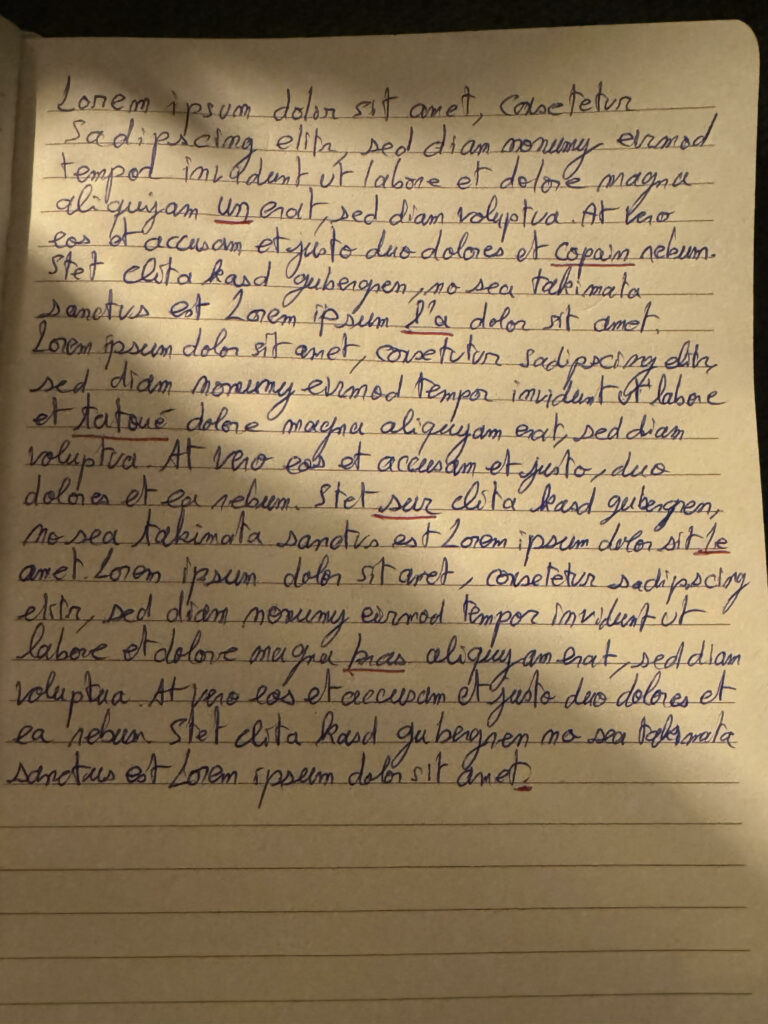 Lorem ipsum dolor sit amet, consetetur
sadipscing elitr, sed diam nonumy eirmod
tempor invidunt ut labore et dolore magna
aliquyam un erat, sed diam voluptua. At vero
eos et accusam et justo duo dolores et copain rebum.
Stet clita kasd gubergren, no sea takimata
sanctus est Lorem ipsum l'a dolor sit amet.
Lorem ipsum dolor sit amet, consetetur sadipscing elitr,
sed diam nonumy eirmod tempor invidunt ut labore
et tatoué dolore magna aliquyam erat, sed diam
voluptua. At vero eos et accusam et justo, duo
dolores et ea rebum. Stet sur clita kasd gubergren,
no sea takimata sanctus est Lorem ipsum dolor sit le
amet. Lorem ipsum dolor sit amet, consetetur sadipscing
elitr, sed diam nonumy eirmod tempor invidunt ut
labore et dolore magna bras aliquyam erat, sed diam
voluptua. At vero eos et accusam et justo duo dolores et
ea rebum. Stet clita kasd gubergren no sea takimata
sanctus est Lorem ipsum dolor sit amet.